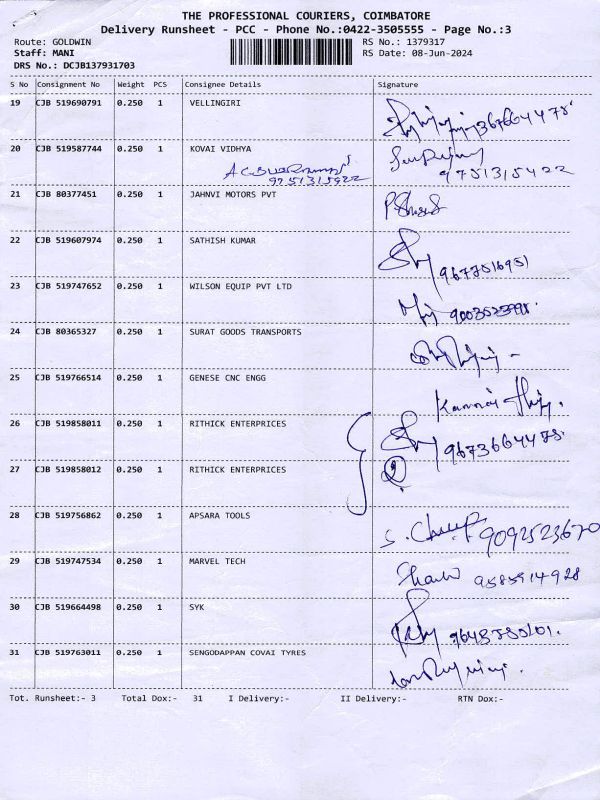 THE PROFESSIONAL COURIERS, COIMBATORE
Delivery Runsheet - PCC - Phone No.:0422-3505555 - Page No.:3
Route: GOLDWIN RS No.: 1379317
Staff: MANI RS Date: 08-Jun-2024
DRS No.: DCJB137931703
S No Consignment No Weight PCS Consignee Details Signature
19 CJB 519690791 0.250 1 VELLINGIRI
20 CJB 519587744 0.250 1 KOVAI VIDHYA
9751315922 9751315422
21 CJB 80377451 0.250 1 JAHNVI MOTORS PVT
22 CJB 519607974 0.250 1 SATHISH KUMAR
9677516951
23 CJB 519747652 0.250 1 WILSON EQUIP PVT LTD
24 CJB 80365327 0.250 1 SURAT GOODS TRANSPORTS
25 CJB 519766514 0.250 1 GENESE CNC ENGG
26 CJB 519858011 0.250 1 RITHICK ENTERPRICES
9673664478
27 CJB 519858012 0.250 1 RITHICK ENTERPRICES
28 CJB 519756862 0.250 1 APSARA TOOLS
9092523670
29 CJB 519747534 0.250 1 MARVEL TECH
9585914928
30 CJB 519664498 0.250 1 SYK
31 CJB 519763011 0.250 1 SENGODAPPAN COVAI TYRES
Tot. Runsheet:- 3 Total Dox:- 31 I Delivery:- II Delivery:- RTN Dox:-